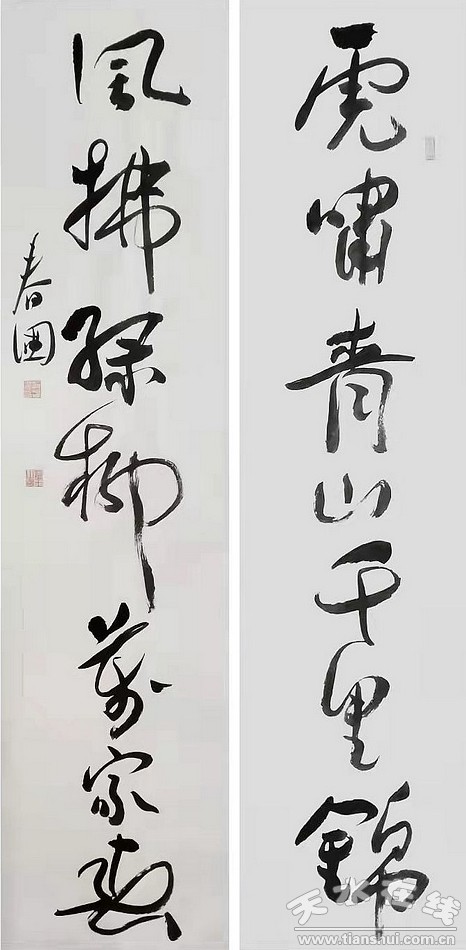 虎嘯青山千里錦
風拂綠柳萬家春
春
天水在线
www.tianshui.com.cn